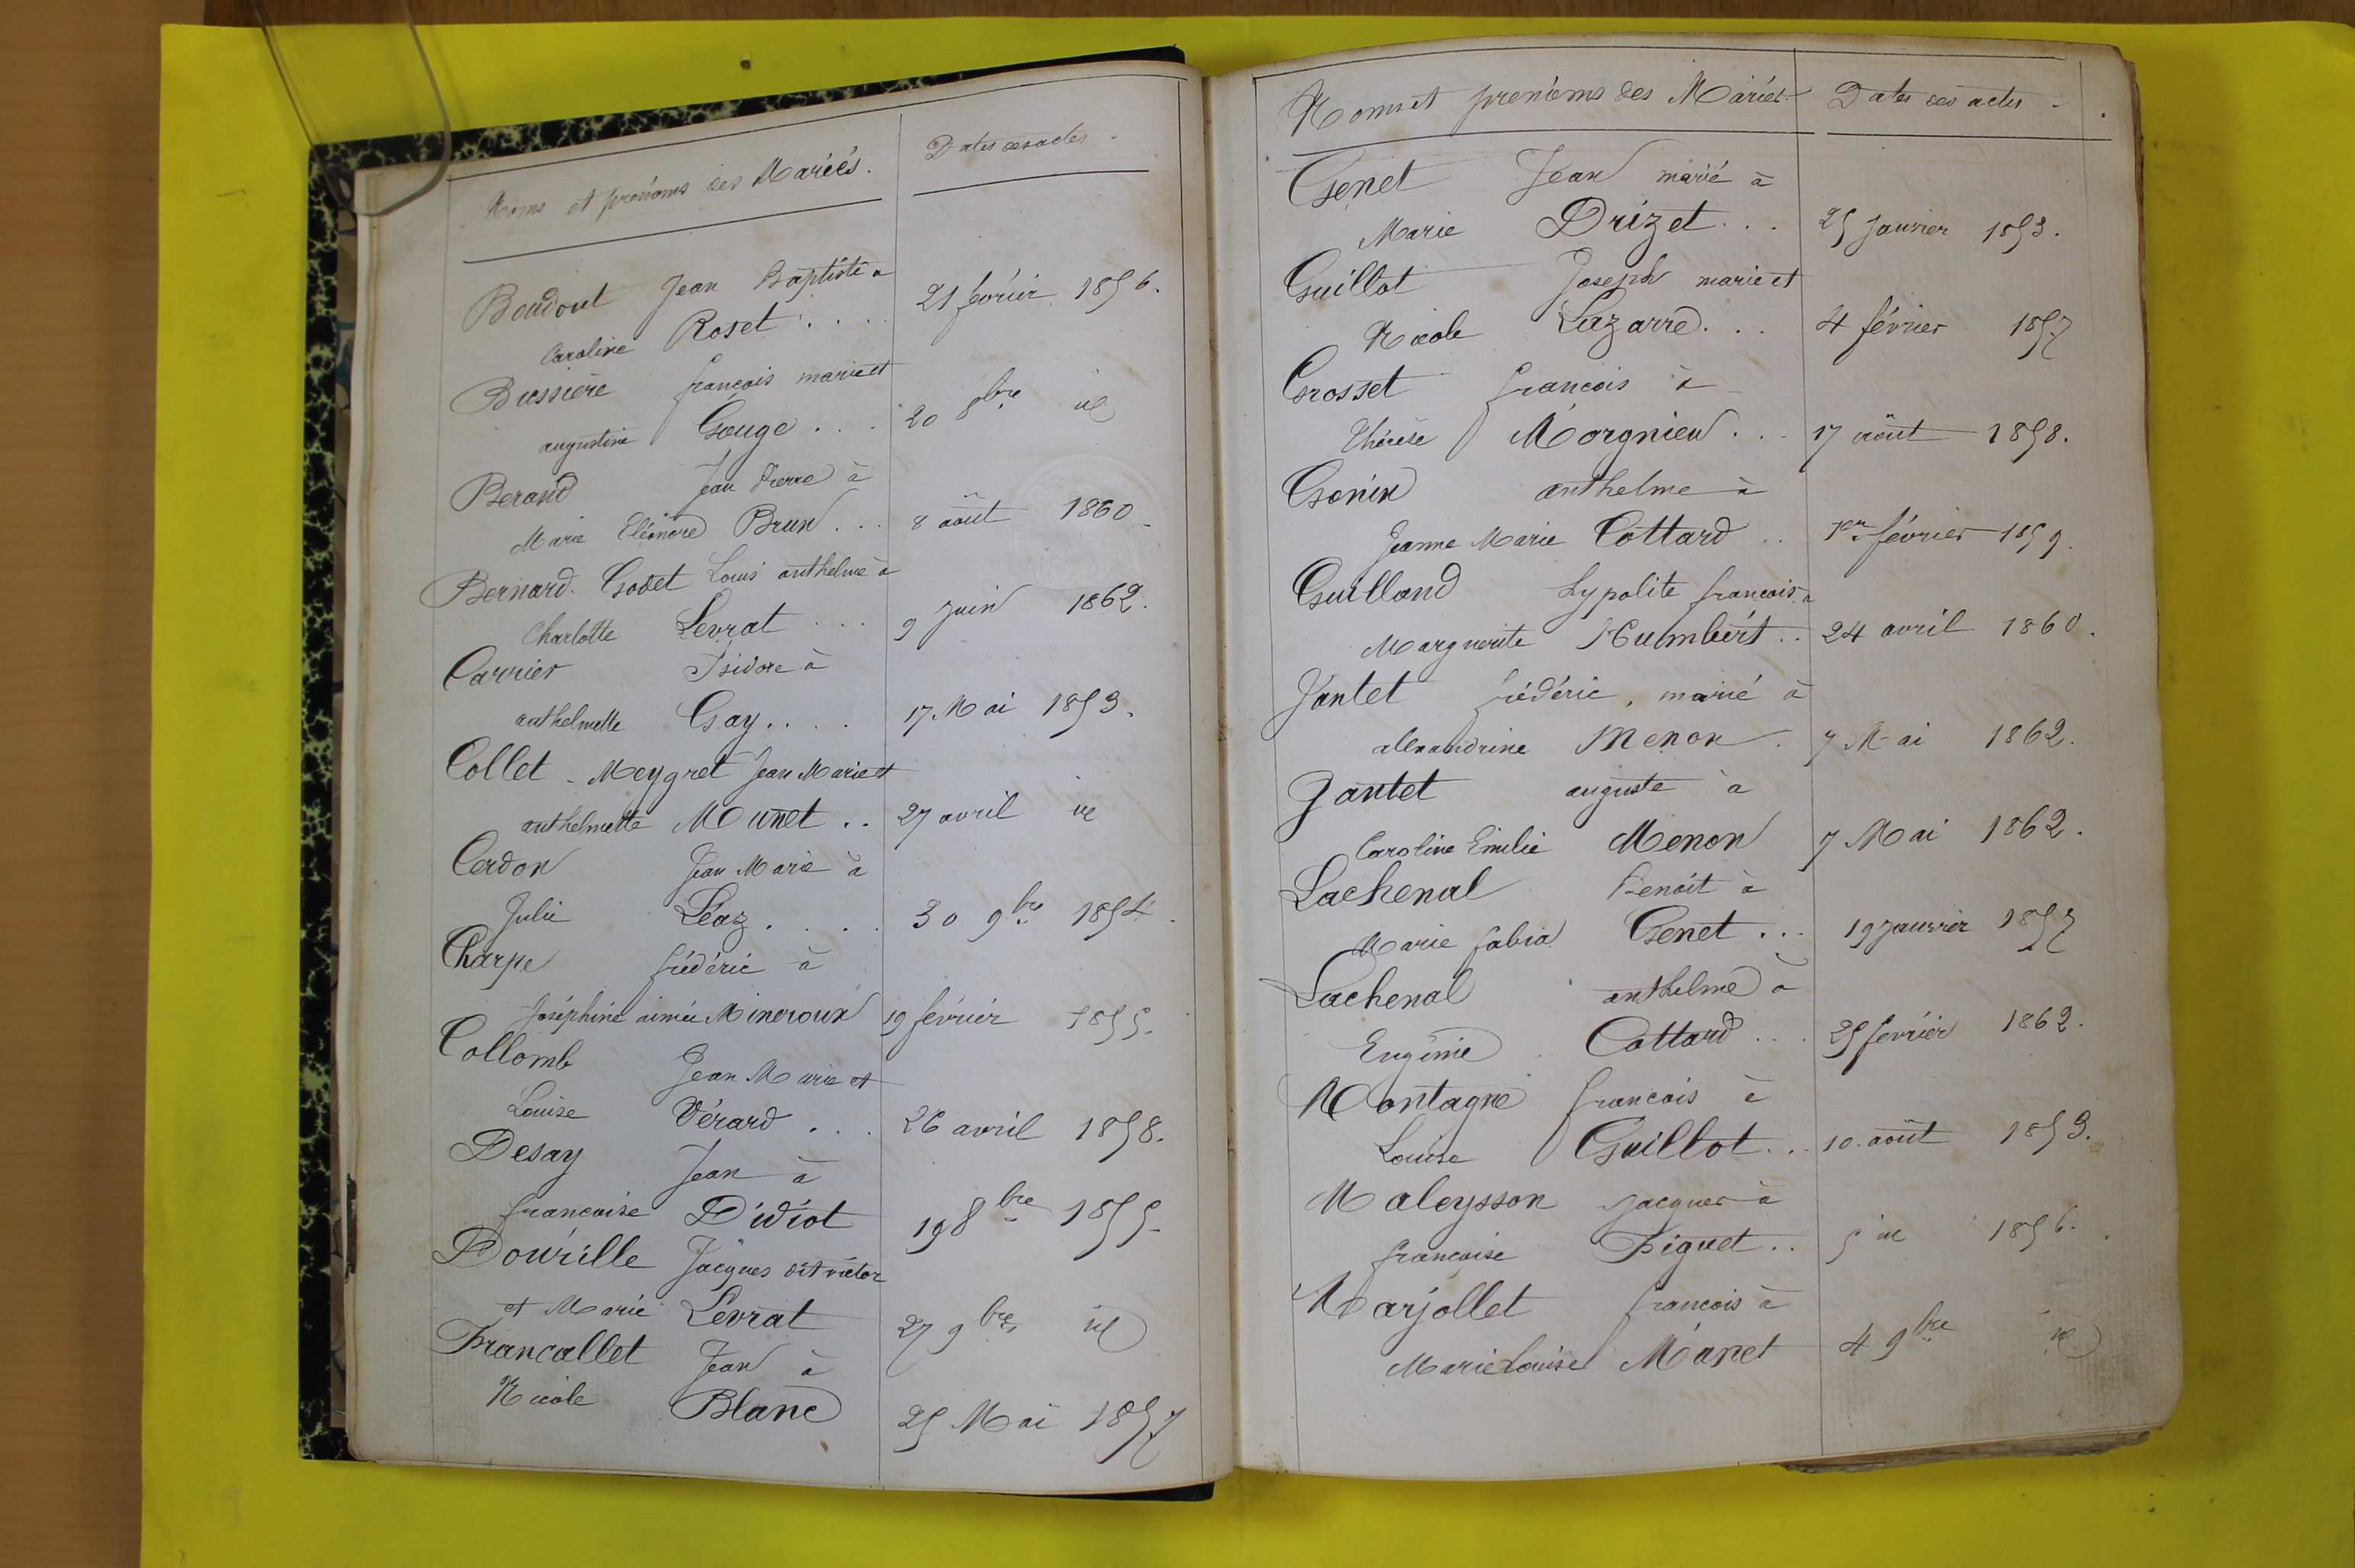 Noms et prénoms des Mariés. Dates des actes.
Boudout Jean Baptiste à
Caroline Roset . . . . 21 février 1856.
Bussière francois marie et
augustine Gouge . . . 20 8bre id
Berand Jean Pierre à
Marie Eléonore Brun . . . 8 août 1860
Bernard. Godet Louis anthelme à
Charlotte Levrat . . . 9 Juin 1862.
Carrier Isidore à
anthelmette Gay . . . . 17 Mai 1853.
Collet - Meygret Jean Marie et
anthelmette Munet . . 27 avril id
Cerdon Jean Marie à
Julie Léaz . . . . 30 9bre 1854.
Charpe frédéric à
Joséphine aimée Mineroux 19 février 1855.
Collomb Jean Marie et
Louise Vérard . . . 26 avril 1858.
Desay Jean à
francoise Didiot 19 8bre 1855.
Dourille Jacques dit victor
et Marie Levrat 27 9bre id
Francallet Jean à
Nicole Blanc 25 Mai 1857
Noms et prenoms des Mariés. Dates des actes.
Genet Jean marié à
Marie Drizet . . . 25 Janvier 1853.
Guillot Joseph marie et
Nicole Lazarre . . . 4 février 1857
Grosset francois à
Thérèse Morgnieu . . . 17 août 1858.
Gonin anthelme à
Jeanne Marie Cottard . . 1er février 1859.
Guilland hypolite francois à
Marguerite Humbert . . 24 avril 1860.
Jantet frédéric, marié à
alexandrine Menon . 7 Mai 1862.
Jantet auguste à
Caroline Emilie Menon 7 Mai 1862.
Lachenal Benoit à
Marie fabia Genet . . . 19 Janvier 1857
Lachenal anthelme à
Eugénie Cottard . . . 25 fevrier 1862.
Montagne francois à
Louise Guillot . . . 10 août 1853.
Maleysson Jacques à
francoise Piguet . . 5 id 1856.
Marjollet francois à
Marie Louise Munet 4 9bre id